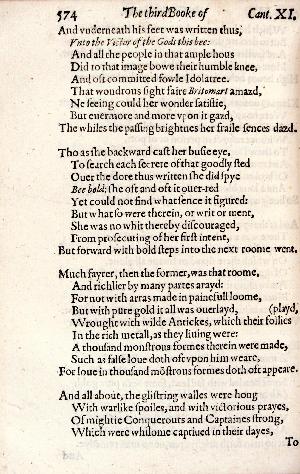 574 The third Booke of Cant. XI.
And vnderneath his feet was written thus,
Vnto the Victor of the Gods this bee:
And all the people in that ample hous
Did to that image bowe their humble knee,
And oft committed fowle Idolatree.
That wondrous sight faire Britomart amazd,
Ne seeing could her wonder satisfie,
But euermore and more vpon it gazd,
The whiles the passing brightnes her fraile sences dazd.
Tho as she backward cast her busie eye,
To search each secrete of that goodly sted
Ouer the dore thus written she did spye
Bee bold: she oft and oft it ouer-red
Yet could not find what sence it figured:
But what so were therein, or writ or ment,
She was no whit thereby discouraged,
From prosecuting of her first intent,
But forward with bold steps into the next roome went.
Much fayrer, then the former, was that roome,
And richlier by many partes arayd:
For not with arras made in painefull loome,
But with pure gold it all was ouerlayd, (playd,
Wrought with wilde Antickes, which their follies
In the rich metall, as they liuing were:
A thousand monstrous formes therein were made,
Such as false loue doth oft vpon him weare,
For loue in thousand mõstrous formes doth oft appeare.
And all about, the glistring walles were hong
With warlike spoiles, and with victorious prayes,
Of mightie Conquerours and Captaines strong,
Which were whilome captiued in their dayes,
To